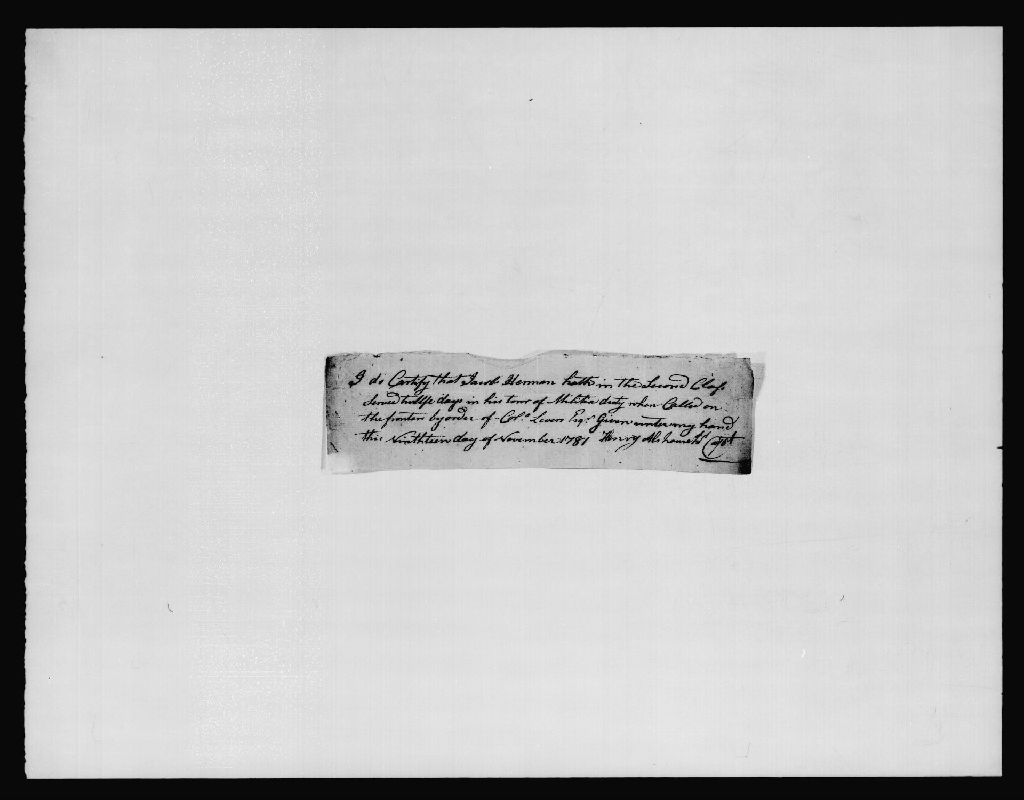 I do Certify that Jacob Herman hath in the Second Class
Served twelfe days in his tour of Militia duty when Called on
the frontier by order of Colo. Levers Esqr. Given under my hand
this Ninthteen day of November 1781 Henry Capt